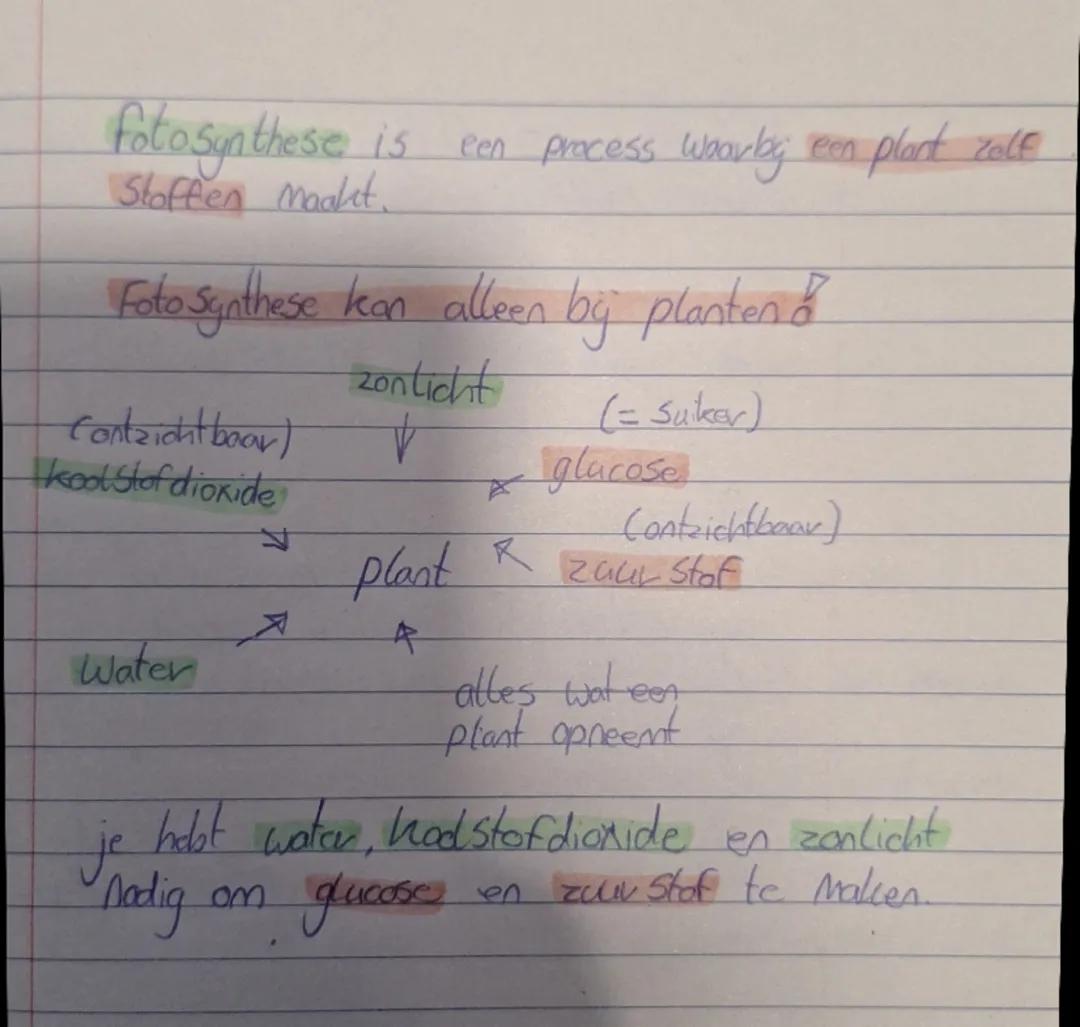 fotosynthese is een process waarbij een plant zelf
stoffen maakt.
Fotosynthese kan alleen bij planten!
zonlicht
(= suiker)
(ontzichtbaar)
glucose
koolstofdioxide
(ontzichtbaar)
plant
zuurstof
water
alles wat een
plant opneemt
je hebt water, koolstofdioxide en zonlicht
nodig om glucose en zuurstof te maken.